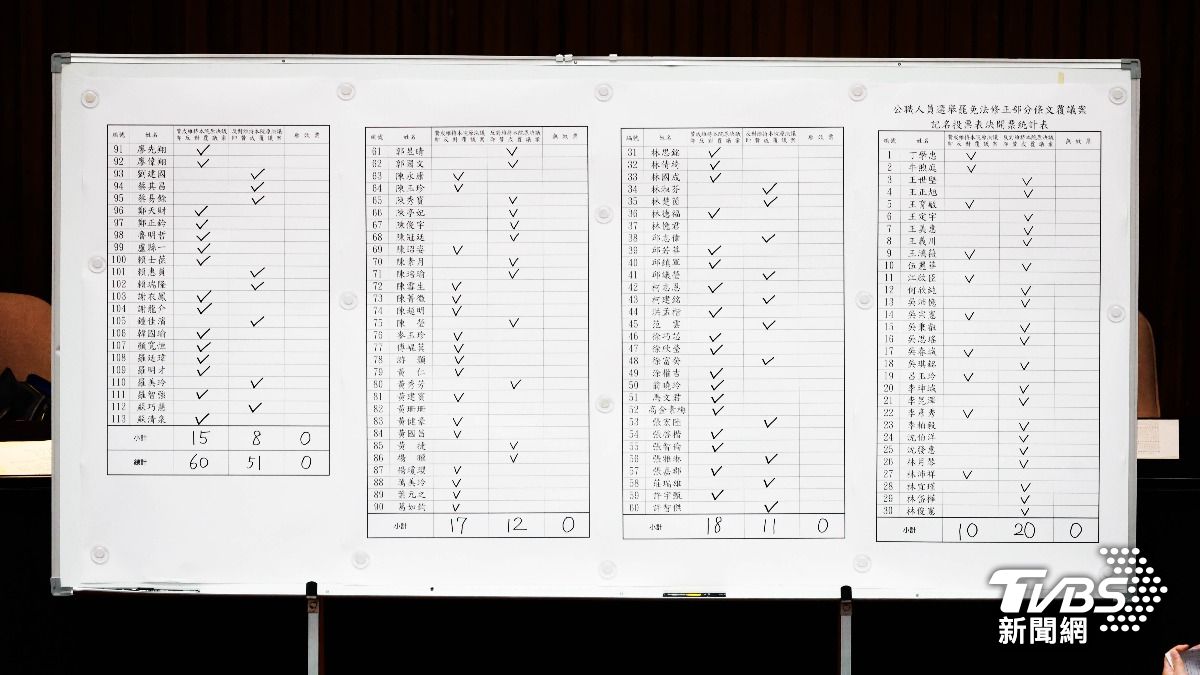 公職人員選舉罷免法修正部分條文覆議案
記名投票表決開票統計表
編號 姓名 贊成維持本院原決議即反對覆議案 反對維持本院原決議即贊成覆議案 無效票
1 丁學忠 ✓
2 牛煦庭 ✓
3 王世堅 ✓
4 王正旭 ✓
5 王育敏 ✓
6 王定宇 ✓
7 王美惠 ✓
8 王義川 ✓
9 王鴻薇 ✓
10 伍麗華 ✓
11 江啟臣 ✓
12 何欣純 ✓
13 吳沛憶 ✓
14 吳宗憲 ✓
15 吳秉叡 ✓
16 吳思瑤 ✓
17 吳春城 ✓
18 吳琪銘 ✓
19 呂玉玲 ✓
20 李坤城 ✓
21 李昆澤 ✓
22 李彥秀 ✓
23 李柏毅 ✓
24 沈伯洋 ✓
25 沈發惠 ✓
26 林月琴 ✓
27 林沛祥 ✓
28 林宜瑾 ✓
29 林岱樺 ✓
30 林俊憲 ✓
小計 10 20 0
編號 姓名 贊成維持本院原決議即反對覆議案 反對維持本院原決議即贊成覆議案 無效票
31 林思銘 ✓
32 林倩綺 ✓
33 林國成 ✓
34 林淑芬 ✓
35 林楚茵 ✓
36 林德福 ✓
37 林憶君
38 邱志偉 ✓
39 邱若華 ✓
40 邱鎮軍 ✓
41 邱議瑩 ✓
42 柯志恩 ✓
43 柯建銘 ✓
44 洪孟楷 ✓
45 范雲 ✓
46 徐巧芯 ✓
47 徐欣瑩 ✓
48 徐富癸 ✓
49 涂權吉 ✓
50 翁曉玲 ✓
51 馬文君 ✓
52 高金素梅 ✓
53 張宏陸 ✓
54 張啓楷 ✓
55 張智倫 ✓
56 張雅琳 ✓
57 張嘉郡 ✓
58 莊瑞雄 ✓
59 許宇甄 ✓
60 許智傑 ✓
小計 18 11 0
編號 姓名 贊成維持本院原決議即反對覆議案 反對維持本院原決議即贊成覆議案 無效票
61 郭昱晴 ✓
62 郭國文 ✓
63 陳永康 ✓
64 陳玉珍 ✓
65 陳秀寳 ✓
66 陳亭妃 ✓
67 陳俊宇 ✓
68 陳冠廷 ✓
69 陳昭姿 ✓
70 陳素月 ✓
71 陳培瑜 ✓
72 陳雪生 ✓
73 陳菁徽 ✓
74 陳超明 ✓
75 陳瑩 ✓
76 麥玉珍 ✓
77 傅崐萁 ✓
78 游顥 ✓
79 黃仁 ✓
80 黃秀芳 ✓
81 黃建賓 ✓
82 黃珊珊
83 黃健豪 ✓
84 黃國昌 ✓
85 黃捷 ✓
86 楊曜 ✓
87 楊瓊瓔 ✓
88 萬美玲 ✓
89 葉元之 ✓
90 葛如鈞 ✓
小計 17 12 0
編號 姓名 贊成維持本院原決議即反對覆議案 反對維持本院原決議即贊成覆議案 無效票
91 廖先翔 ✓
92 廖偉翔 ✓
93 劉建國 ✓
94 蔡其昌 ✓
95 蔡易餘 ✓
96 鄭天財 ✓
97 鄭正鈐 ✓
98 魯明哲 ✓
99 盧縣一 ✓
100 賴士葆 ✓
101 賴惠員 ✓
102 賴瑞隆 ✓
103 謝衣鳯 ✓
104 謝龍介 ✓
105 鍾佳濱 ✓
106 韓國瑜 ✓
107 顏寬恒 ✓
108 羅廷瑋 ✓
109 羅明才 ✓
110 羅美玲 ✓
111 羅智強 ✓
112 蘇巧慧 ✓
113 蘇清泉 ✓
小計 15 8 0
總計 60 51 0
TVBS
新聞網